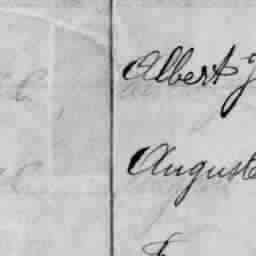 Albert J
August